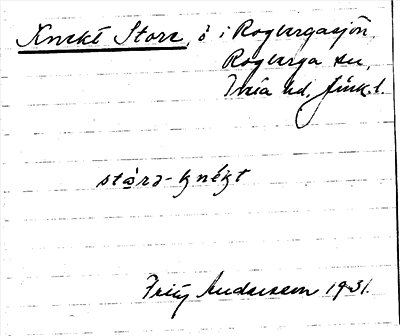 Knekt Store, ö i Rogbergasjön,
Rogberga sn,
Tveta hd, Jönk. l.
stárə-knékt
Fritz Andersson 1931.